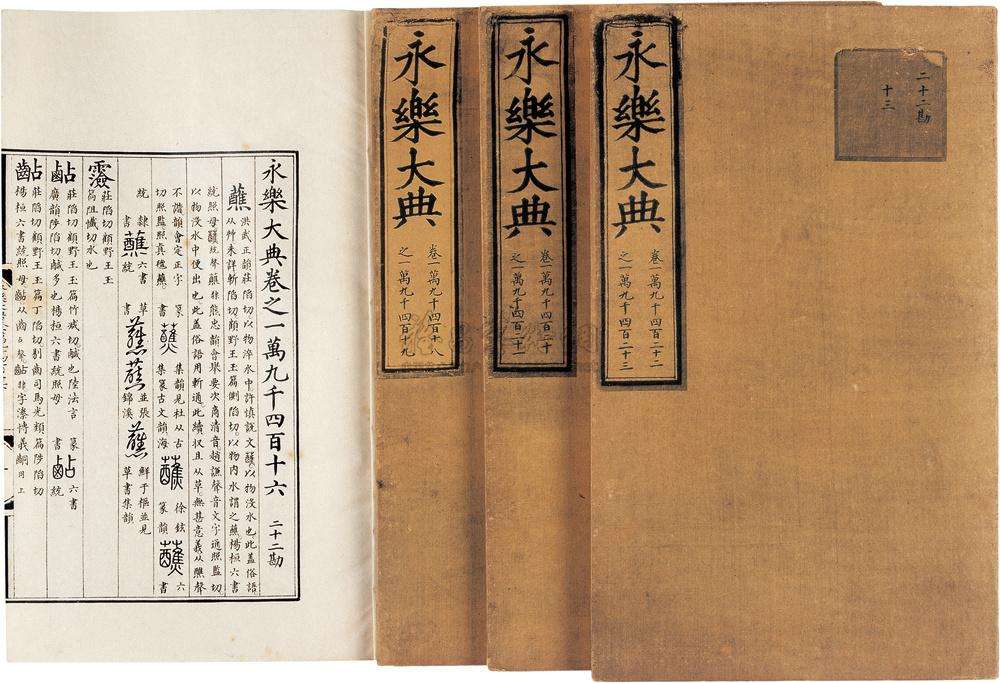 永樂大典卷之一萬九千四百十六 二十二勘
蘸 洪武正韻莊陷切以物淬水中許慎説文蘸以物沒水也此蓋俗語
从艸未詳斬陷切顧野王玉篇側陷切以物內水謂之蘸楊桓六書
統照母
以物沒水中便出也此蓋俗語用斬適此續収且从草無甚意義从醮聲
不諧韻會定正字 篆 蘸 集韻見杜从古 蘸 徐鉉 蘸 六
切照監照真 蘸 書 集篆古文韻海 篆韻 書
統 隸 蘸 六書 草 蘸 蘸 並張 蘸 鮮于樞並見
書 統 書 錦溪 草書集韻
莊陷切顧野王玉
篇阻懺切水也
莊陷切顧野王玉篇竹咸切鹹也陸法言 篆 六書
廣韻陟陷切鹹多也楊桓六書統照母 書 統
莊陷切顧野王玉篇丁陷切齒司馬光類篇陟陷切
楊桓六書統照母从齒占聲
永樂大典
卷一萬九千四百十八
之一萬九千四百十九
永樂大典
卷一萬九千四百二十
之一萬九千四百二十一
永樂大典
卷一萬九千四百二十二
之一萬九千四百二十三
二十二勘
十三